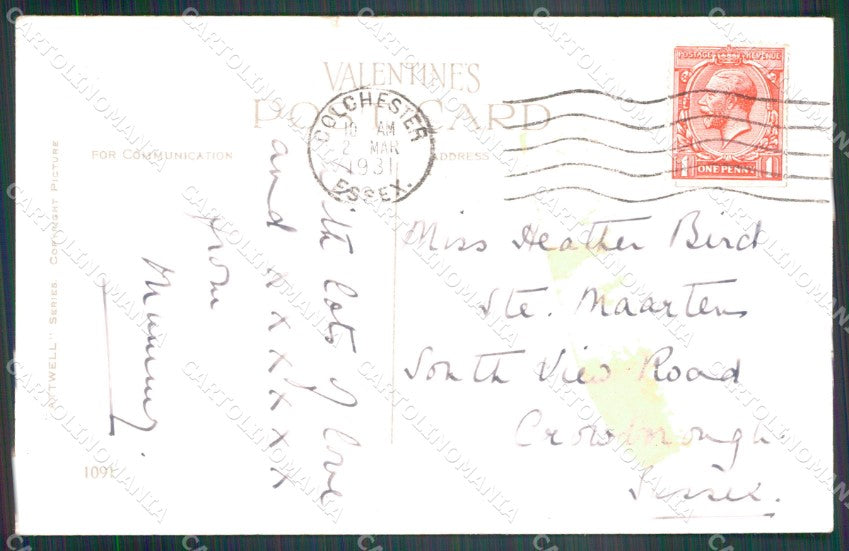 VALENTINE'S
POST CARD
FOR COMMUNICATION
ADDRESS
COLCHESTER
10 AM
2 MAR
1931
ESSEX.
POSTAGE REVENUE
1 ONE PENNY 1
Miss Heather Bird
Ste. Maartens
South View Road
Crowborough.
Sussex.
with lots of love
and x x x x x x
from
Mummy.
ATTWELL" SERIES. COPYRIGHT PICTURE
1091
CARTOLINOMANIA